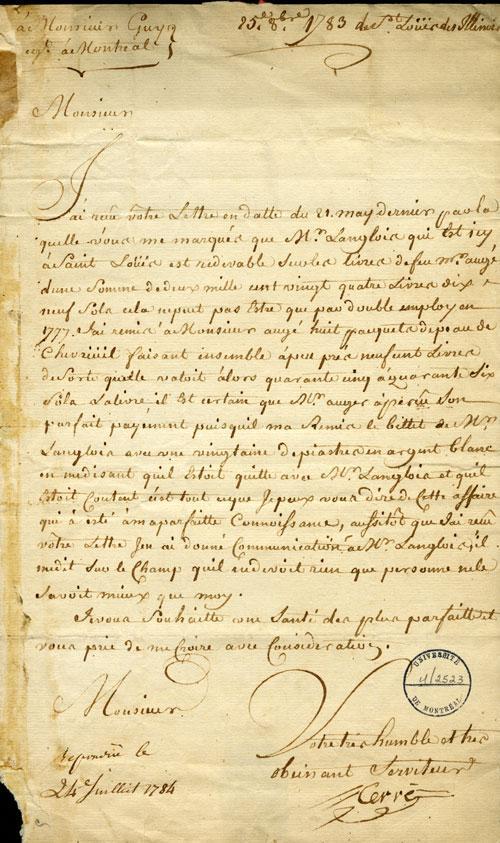 à Monsieur Guy
à Montréal
25e 8bre 1783 de St Loüis des Illinois
Monsieur
J'ai reçu vôtre Lettre en datte du 21. may dernier par la
quelle vous me marqués que Mr. Langlois qui est icy
à Saint Loüis est redevable sur les livres de feu mr. augé
d'une Somme de deux mille cent vingt quatre Livres dix e
neuf Sols cela ne peut pas Estre que par double employ en
1777. J'ai remis à Monsieur augé huit paquets de peau de
Chevriüil faisant ensemble àpeu près neuf cent Livres
de Sorte qu'elle valoit âlors quarante cinq a quarante Six
Sols La livre il Est certain que Mr. auger à perçu Son
parfait payement puisquil ma Remis le billet de Mr.
Langlois avec une vingtaine de piastres en argent blanc
en me disant quil Estoit quitte avec Mr. Langlois et quil
Estoit Content c'est tout ce que Je peux vous dire de Cette affaire
qui à esté à ma parfaitte Connoissance, aussitôt que J'ai reçu
vôtre Lettre J'en ai donné Communication à Mr. Langlois, il
m'edit Sur le Champ quil ne devoit rien que personne ne le
Savoit mieux que moy.
Je vous Souhaitte une Santé des plus parfaitte et
vous prie de me Croire avec Considération,
Monsieur
Votre très humble et très
obeissant Serviteur
Cerré
repondüe le
24e Juillet 1784
UNIVERSITÉ
U/2523
DE MONTRÉAL